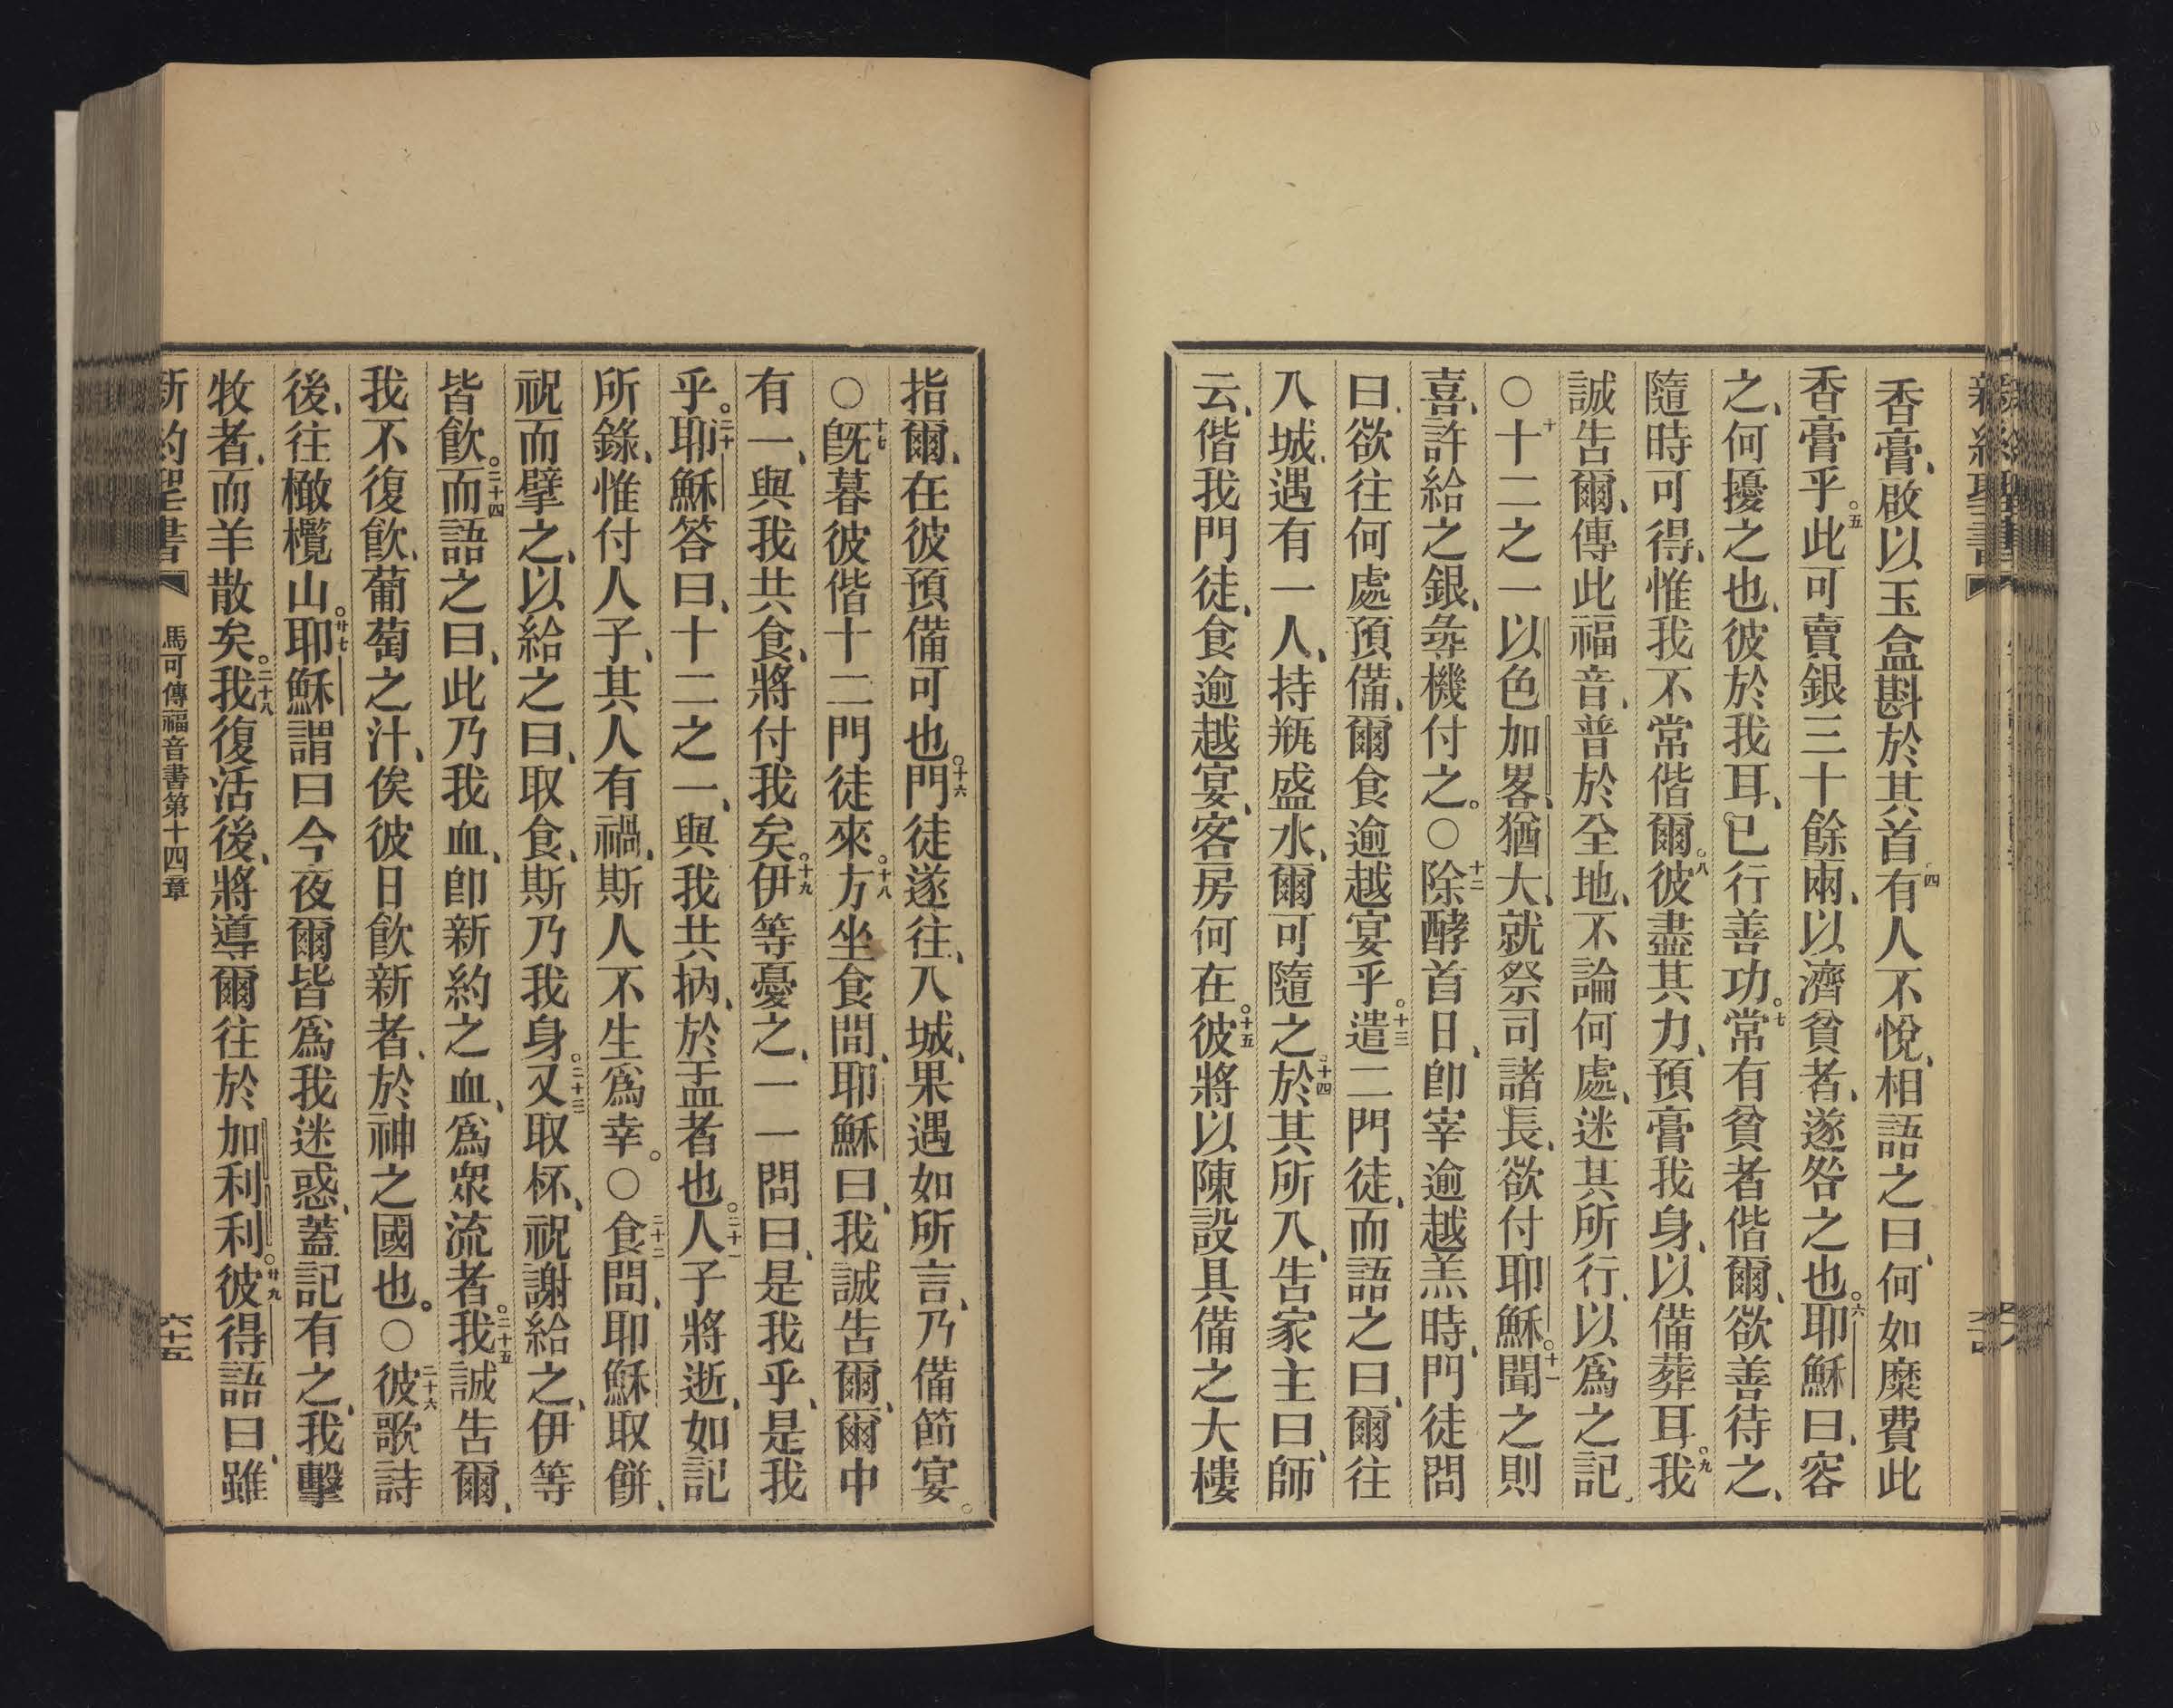 香膏、啟以玉盒斟於其首四有人不悅、相語之曰、何如糜費此
香膏乎。五此可賣銀三十餘兩、以濟貧者、遂咎之也。六耶穌曰、容
之、何擾之也、彼於我耳、已行善功。七常有貧者偕爾、欲善待之、
隨時可得、惟我不常偕爾。八彼盡其力、預膏我身、以備葬耳。九我
誠吿爾、傳此福音、普於全地、不論何處、述其所行、以爲之記、
○十十二之一以色加畧、猶大、就祭司諸長、欲付耶穌。十一聞之則
喜、許給之銀、尋機付之。○十二除酵首日、卽宰逾越羔時、門徒問
曰、欲往何處預備、爾食逾越宴乎。十三遣二門徒、而語之曰、爾往
入城、遇有一人、持瓶盛水、爾可隨之十四於其所入、吿家主曰、師
云、偕我門徒、食逾越宴、客房何在。十五彼將以陳設具備之大樓
指爾、在彼預備可也。十六門徒遂往、入城、果遇如所言、乃備節宴。
○十七旣暮彼偕十二門徒來。十八方坐食間、耶穌曰、我誠吿爾、爾中
有一、與我共食、將付我矣。十九伊等憂之、一一問曰、是我乎、是我
乎。二十耶穌答曰、十二之一、與我共抐、於盂者也。二十一人子將逝、如記
所錄、惟付人子、其人有禍、斯人不生爲幸。○二十二食間、耶穌取餅、
祝而擘之、以給之曰、取食、斯乃我身。二十三又取杯、祝謝給之、伊等
皆飮。二十四而語之曰、此乃我血、卽新約之血、爲眾流者。二十五我誠吿爾、
我不復飮、葡萄之汁、俟彼日飮新者、於神之國也。○二十六彼歌詩
後、往橄欖山。廿七耶穌謂曰今夜爾皆爲我迷惑、蓋記有之、我擊
牧者、而羊散矣。二十八我復活後、將導爾往於加利利。廿九彼得語曰、雖
新約聖書 馬可傳福音書第十四章 六十五